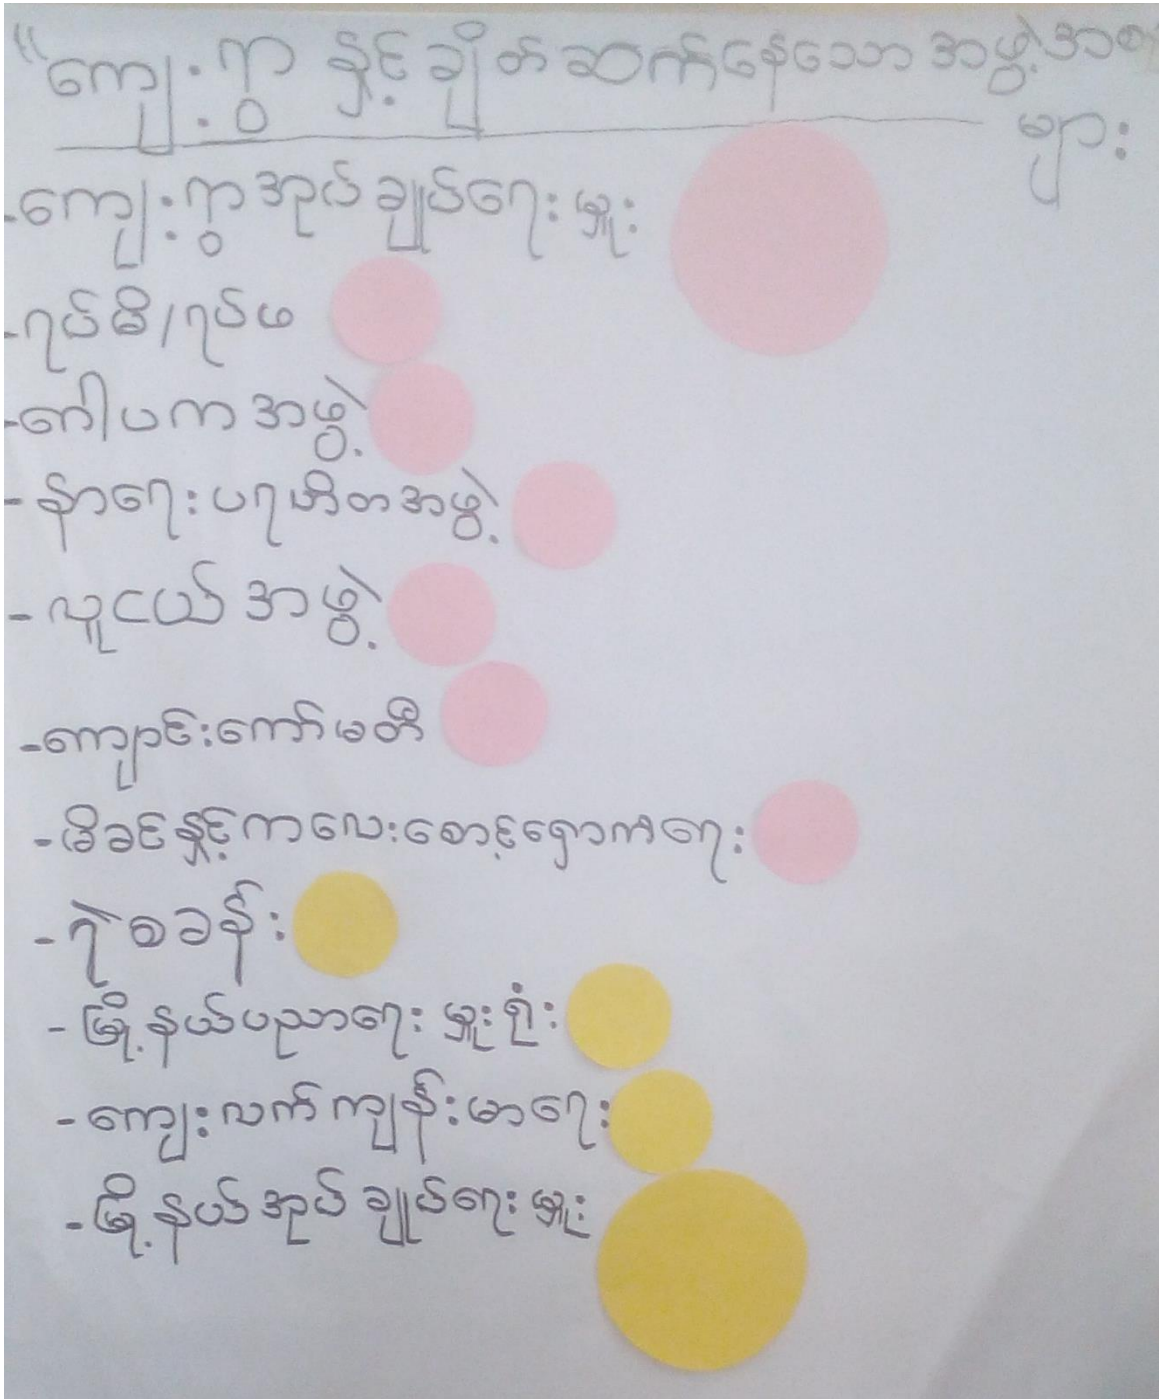 "ကျေးရွာ နှင့် ချိတ်ဆက်နေသော အဖွဲ့အစ
များ
-ကျေးရွာအုပ်ချုပ်ရေးမှူး
-ရပ်မိ/ရပ်ဖ
-ဂေါပကအဖွဲ့
-နာရေးပရဟိတအဖွဲ့
-လူငယ်အဖွဲ့
-ကျောင်းကော်မတီ
-မိခင်နှင့်ကလေးစောင့်ရှောက်ရေး
-ရဲစခန်း
-မြို့နယ်ပညာရေးမှူးရုံး
-ကျေးလက်ကျန်းမာရေး
-မြို့နယ်အုပ်ချုပ်ရေးမှူး